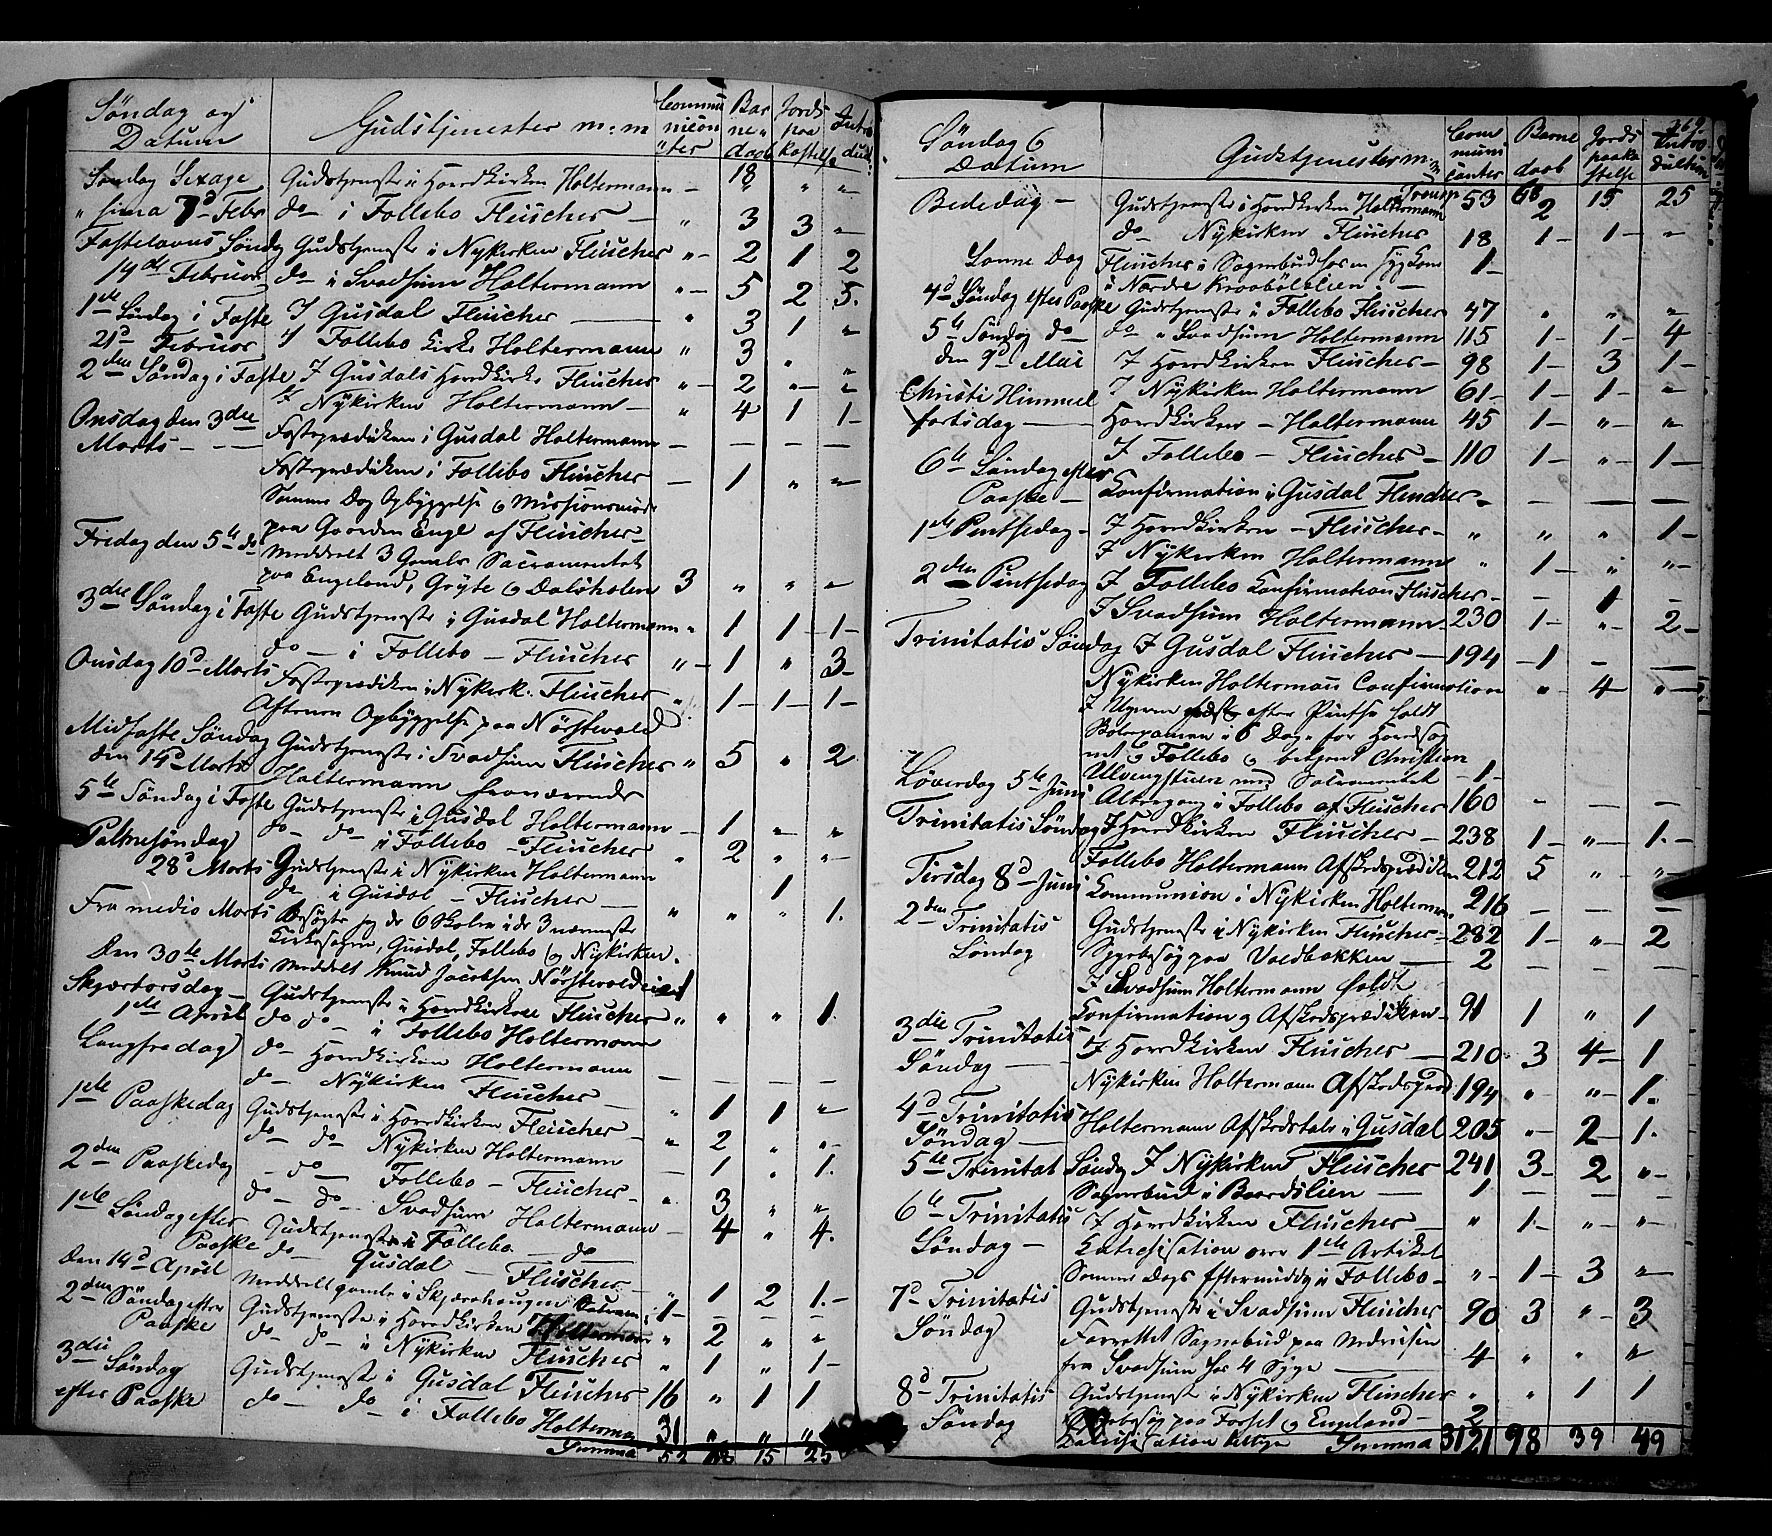 Söndag og Datum | Gudstjenester m: m | Communicanter | Barnedaab | Jords paakastelse | Introduct:
Søndag Sexage | Gudstjenste i Hovedkirken Holtermann — | 18 | " | "
" sima 7d Febr | do — i Follebo Fleischer — " | 3 | 3 | "
Fastelavns Søndg | Gudstjenste i Nykirken Fleischer " — | 2 | 1 | 2
14de Februar | do — i Svadsum Holtermann " — | 5 | 2 | 5.
1ste Søndag i Faste | I Gusdal Fleischer — " | 3 | 1 | "
21d Februar | I Follebo Kirke Holtermann " | 3 | " | "
2den Søndag i Faste | I Gusdals Hovedkirke Fleischer " — | 2 | " — | "
I Nykirken Holtermann — " | 4 | 1 | 1 —
Onsdag den 3die | Fasteprædiken i Gusdal Holtermann — | — | — | —
Marts — | Fasteprædiken i Follebo Fleischer — | 1 | " | "
Samme Dag Opbyggelse o Missionsmöde
paa Gaarden Enge af Fleischer —
Fredag den 5te do | meddelt 3 Gamle Sacramentet
paa Engeland, Gryte o Dalsholen | 3 | " | " | "
3die Søndag i Faste | Gudstjenste i Gusdal Holtermann " | 1 | 1 | 1 —
do — i Follebo — Fleischer " — | 1 | " | 3 —
Onsdag 10d Marts | Fasteprædiken i Nykirk: Fleischer " | 1 — | 1 — | 1 —
Aftenen Opbyggelse paa Nörstevold
Midfaste Søndag | Gudstjenste i Svadsum Fleischer " | 5 | " | 2
den 14d Marts | Holtermann fraværende
5te Søndag i Faste | Gudstjenste i Gusdal Holtermann — | 1 | " | "
Palmesøndag | do — do — i Follebo — Fleischer " | 2 | " | " —
28d Marts | Gudstjenste i Nykirken Holtermann
do i Gusdal — Fleischer — | 1
Fra medio Marts | besøgte jeg de 6 Skoler i de 3 nærmeste " | " | " | 1.
Kirkesogne, Gusdal, Follebo og Nykirken.
Den 30te Marts | meddelt Knud Jacobsen Nörstevoldeie | 1
Skjærtorsdag — | Gudstjenste i Hovedkirken Fleischer " | " | " | 1.
1ste April | do do — i Follebo Holtermann
Langfredag | do — Hovedkirken Holtermann
do — Nykirken Fleischer — | — | — | — | —
1ste Paaskedag | Gudstjenste i Hovedkirken Fleischer — " | 1 | 1 | "
do — do — Nykirken Holtermann " | 2 | " | " —
2den Paaskedag | — do — Follebo — Fleischer — | 1 | " | 1.
do — do — Svadsum Holtermann — " | 3 | " | "
1ste Søndag efter | Gudstjenste i Follebo — do — | 4 | " | 4.
Paaske | do — Gusdal — Fleischer —
Den 14d April | Meddelt gamle i Skjærehaugen " | 1 | 2 | 1. —
2den Søndag efter | Gudstjenste i Hovedkirken Holtermann | 1 — | — | — | —
Paaske | do — do — i Nykirken Fleischer " | 2 | " | "
3die Søndag | Gudstjenste i Gusdal Fleischer " | 1 | " | 1 —
efter Paaske | do — do — i Follebo | 16 | " | 1 | 1
Holterman | 31 | " | " | "
Summa | 53 | 68 | 15 | 25
269.
Söndag 6 Datum | Gudstjenester m: m | Communicanter | Barnedaab | Jords paakastelse | Introduktion
Transp | 53 | 68 | 15 | 25
Bededag — | Gudstjenste i Hovedkirken Holtermann | 2
do — Nykirken Fleischer | 18 | 1 — | 1 — | "
Samme Dag | Fleischer i Sognebud hos en Sygkone | 1 —
i Nordre Kraaböllien. —
4d Søndag efter Paaske | Gudstjenste i Follebo Fleischer | 47 | " | " | "
5te Søndag do — | do " Svadsum Holtermann | 115 | 1 — | 1 — | 4
den 9d Mai | I Hovedkirken Fleischer — | 98 | 1 — | 3 | 1 —
Christi Himmel | I Nykirken Holtermann | 61 — | 1 — | 1 — | "
fartsdag — | Hovedkirken — Holtermann | 45 | 1 — | " — | "
6te Søndag efter | I Follebo — Fleischer — | 110 | 1 — | " — | 1 —
Paaske — | Confirmation i Gusdal Fleischer — | — | — | — | —
1ste Pintsedag — | I Hovedkirken — Fleischer — | " | " | " | 1 —
I Nykirken Holtermann | " | 1 — | " | " —
2den Pintsedag | I Follebo Confirmation Fleischer — | — | — | 1 | —
I Svadsum Holtermann | 230 | 1 — | " — | 2 —
Trinitatis Søndag | I Gusdal Fleischer — | 194 | 1 | — | —
Nykirken Holtermann Confirmation | " | 4 — | " —
I Ugen efter Pintse holdt
Skoleexamen i 6 Dage for Hovedsog
net o Follebo o betjent Christian
Ulvengstuen med Sacramentet | 1 —
Løverdag 5te Juni | Altergang i Follebo af Fleischer | 160 | — | — | —
Trinitatis Søndag | I Hovedkirken Fleischer — | 238 | 1 — | " — | 1. —
Follebo Holtermann Afskedsprædiken | 212 | 5 | " | " —
Tirsdag 8d Juni | Communion i Nykirken Holterm | 216 | — | — | —
2den Trinitatis | Gudstjenste i Nykirken Fleischer — | 282 | 1 — | " — | 2
Søndag | Sygebesøg paa Voldbakken — | 2 | — | — | —
I Svadsum Holtermann holdt
Confirmation o Afskedsprædiken — | 91 | 1 | " | 1
3die Trinitatis Søndag — | I Hovedkirken Fleischer — | 210 | 3 | 4 — | 1
Nykirken Holtermann Afskedspræd | 194 | " | " — | 1.
4d Trinitatis Søndag — | Holtermann Afskedstale i Gusdal | 205 | " | 2 | 1.
5te Trinitat Søndg | I Nykirken Fleischer | 241 | 3 — | 2 | " —
Sognebud i Baardslien — | 1 | — | — | —
6te Trinitatis | I Hovedkirken Fleischer — | " | 1. — | " — | " —
Søndag — | Catechisation over 1ste Artikel
Samme Dags Eftermiddg i Follebo — | " — | 1 — | 3 | "
7d Trinitatis | Gudstjenste i Svadsum Fleischer | 90 | 3 | " — | 3
Søndag | Forrettet Sognebud paa Nedreisen
fra Svadsum hos 4 Syge — | 4 | " | " | "
8d Trinitatis | Gudstjenste i Nykirken Fleischer | " | " | 1 | 1
Søndag | Sygebesøg paa Forset o Engeland — | 2
Catechisation tillige Summa | 3121 | 98 | 39 | 49